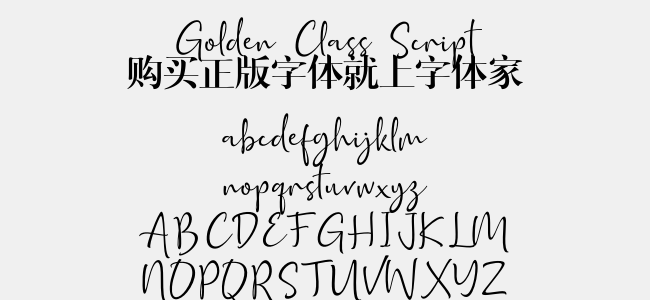 Golden Class Script
购买正版字体就上字体家
abcdefghijklm
nopqrstuvwxyz
ABCDEFGHIJKLM
NOPQRSTUVWXYZ